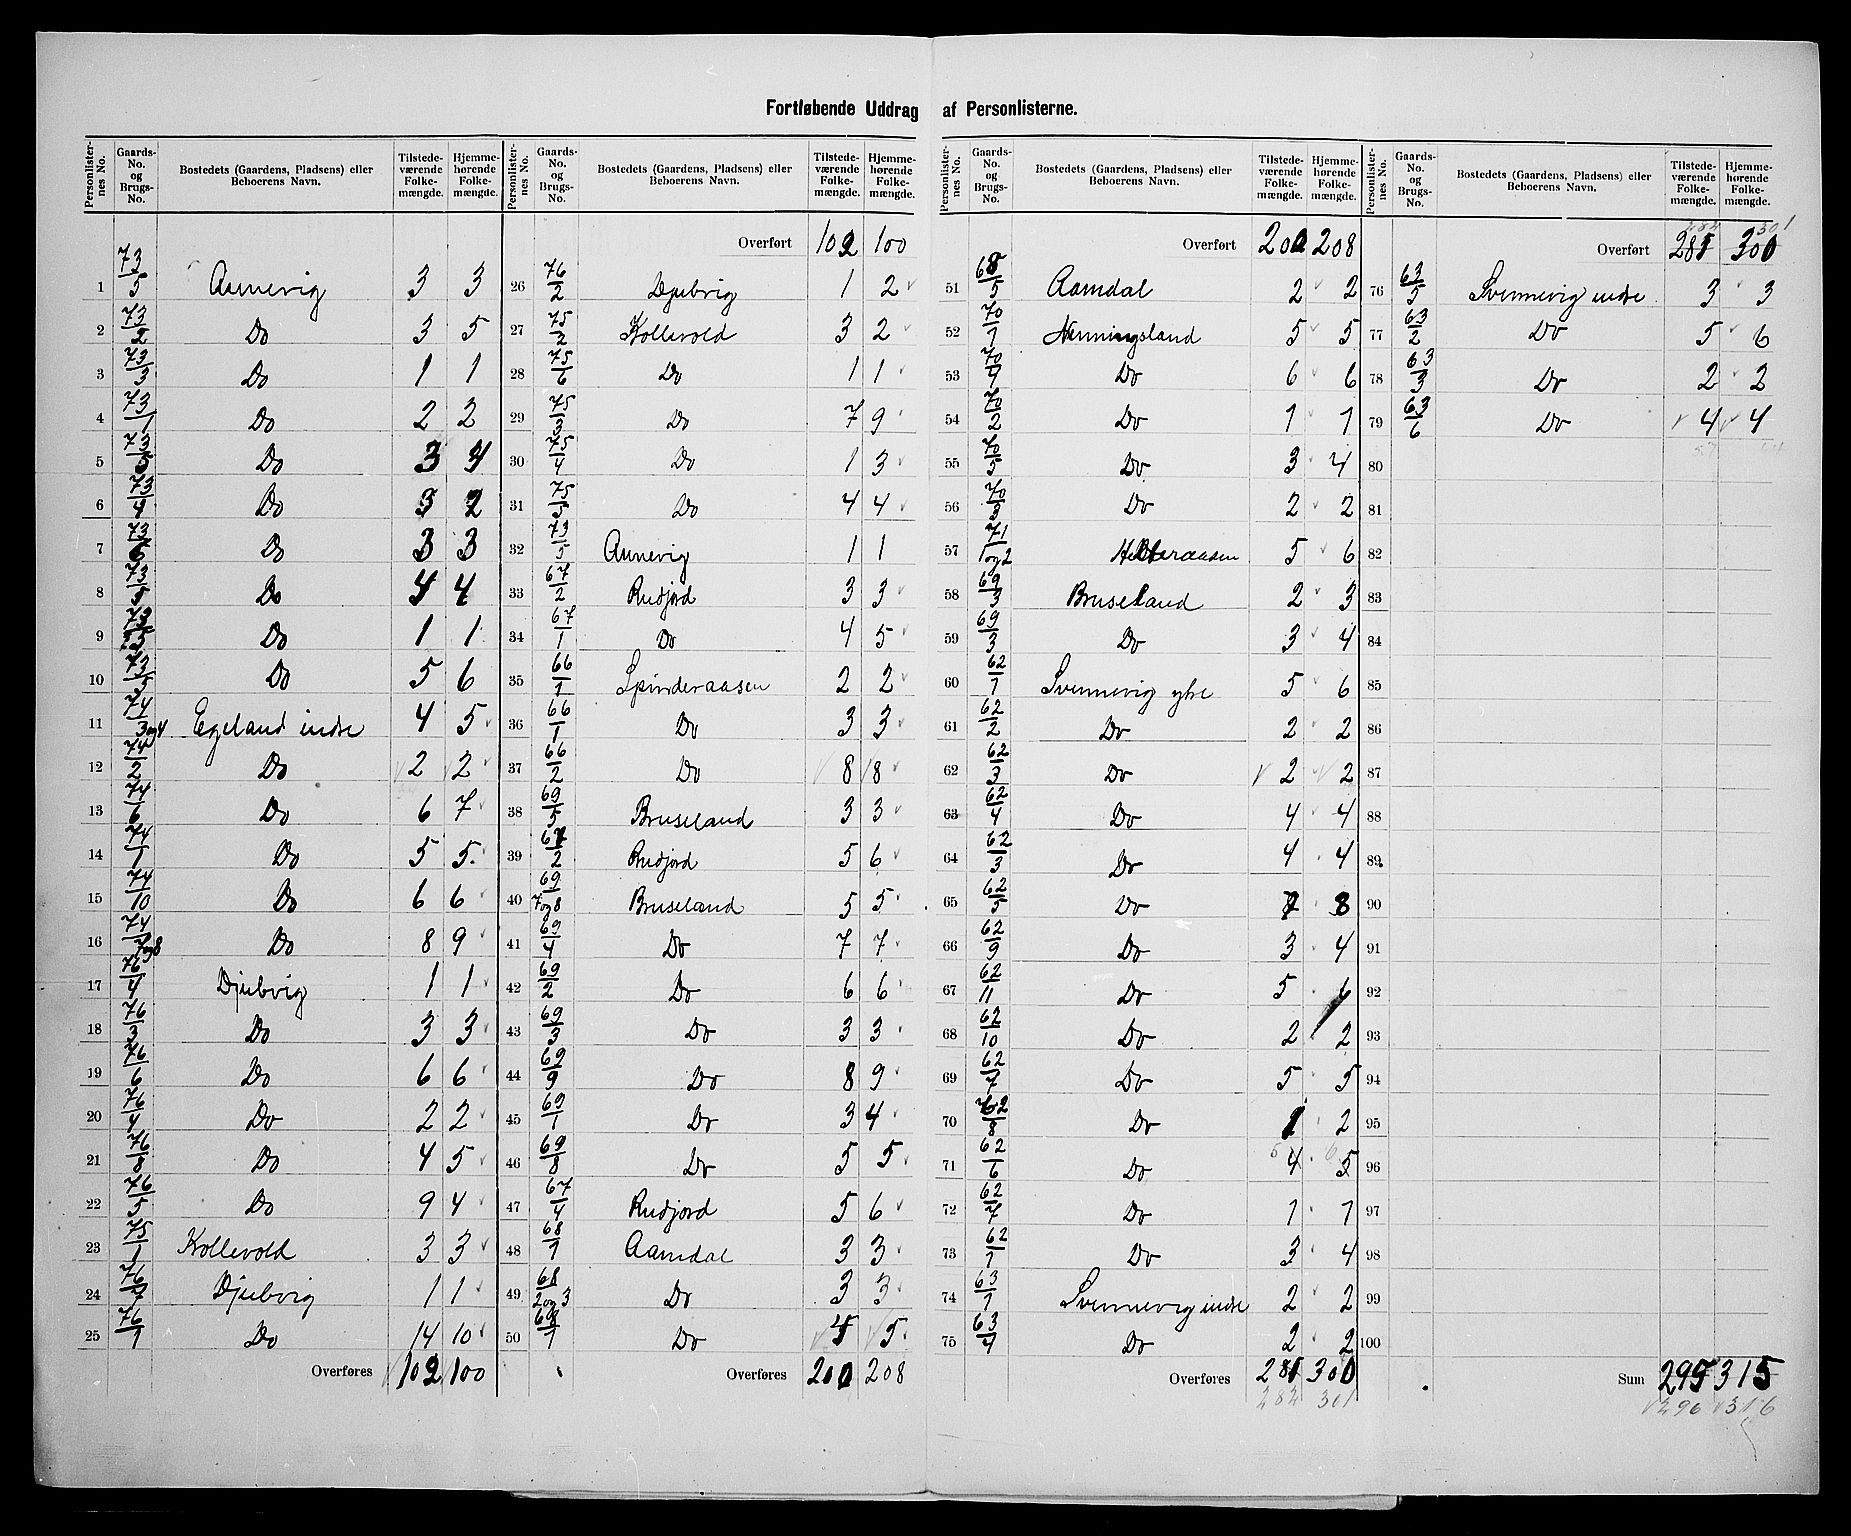 Fortløbende Uddrag af Personlisterne.
Personlister-nes No. | Gaards-No. og Brugs-No. | Bostedets (Gaardens, Pladsens) eller Beboerens Navn. | Tilstede-værende Folke-mængde. | Hjemme-hørende Folke-mængde.
1 73/5 Aunevig 3 3
2 73/2 Do 3 5
3 73/3 Do 1 1
4 73/1 Do 2 2
5 73 Do 3 4
6 73/4 Do 3 2
7 73/6 Do 3 3
8 73/5 Do 4 4
9 73/5 Do 1 1
10 73/5 Do 5 6
11 74/3og4 Egeland indre 4 5
12 74/2 Do 2 2
13 74/6 Do 6 7
14 74/1 Do 5 5
15 74/10 Do 6 6
16 74/7og8 Do 8 9
17 76/4 Djubvig 1 1
18 76/3 Do 3 3
19 76/6 Do 6 6
20 76/4 Do 2 2
21 76/8 Do 4 5
22 76/5 Do 9 4
23 75/1 Kollevold 3 3
24 76/7 Djubvig 1 1
25 76/1 Do 14 10
Overføres 102 100
Personlister-nes No. | Gaards-No. og Brugs-No. | Bostedets (Gaardens, Pladsens) eller Beboerens Navn. | Tilstede-værende Folke-mængde. | Hjemme-hørende Folke-mængde.
Overført 102 100
26 76/2 Djubvig 1 2
27 75/2 Kollevold 3 2
28 75/6 Do 1 1
29 75/3 Do 7 9
30 75/4 Do 1 3
31 75/5 Do 4 4
32 73/5 Aunevig 1 1
33 67/2 Rudjord 3 3
34 67/1 Do 4 5
35 66/1 Spinderaasen 2 2
36 66/1 Do 3 3
37 66/2 Do 8 8
38 69/5 Bruseland 3 3
39 67/2 Rudjord 5 6
40 69/7og8 Bruseland 5 5
41 69/4 Do 7 7
42 69/2 Do 6 6
43 69/3 Do 3 3
44 69/9 Do 8 9
45 69/1 Do 3 4
46 69/8 Do 5 5
47 67/4 Rudjord 5 6
48 68/1 Aamdal 3 3
49 68/2og3 Do 3 3
50 68/1 Do 4 5
Overføres 200 208
Personlister-nes No. | Gaards-No. og Brugs-No. | Bostedets (Gaardens, Pladsens) eller Beboerens Navn. | Tilstede-værende Folke-mængde. | Hjemme-hørende Folke-mængde.
Overført 200 208
51 68/5 Aamdal 2 2
52 70/1 Nenningsland 5 5
53 70/4 Do 6 6
54 70/2 Do 1 1
55 70/5 Do 3 4
56 70/3 Do 2 2
57 71/1og2 5 6
58 69/3 Bruseland 2 3
59 69/3 Do 3 4
60 62/1 Svennevig ytre 5 6
61 62/2 Do 2 2
62 62/3 Do 2 2
63 62/4 Do 4 4
64 62/3 Do 4 4
65 62/5 Do 7 8
66 62/9 Do 3 4
67 62/11 Do 5 6
68 62/10 Do 2 2
69 62/7 Do 5 5
70 62/8 Do 1 2
71 62/6 Do 4 5
72 62/7 Do 1 1
73 62/1 Do 3 4
74 63/1 Svennevig indre 2 2
75 63/4 Do 2 2
Overføres 281 300
282 301
Personlister-nes No. | Gaards-No. og Brugs-No. | Bostedets (Gaardens, Pladsens) eller Beboerens Navn. | Tilstede-værende Folke-mængde. | Hjemme-hørende Folke-mængde.
282 301
Overført 281 300
76 63/5 Svennevig indre 3 3
77 63/2 Do 5 6
78 63/3 Do 2 2
79 63/6 Do 4 4
80
81
82
83
84
85
86
87
88
89
90
91
92
93
94
95
96
97
98
99
100
Sum 295 315
296 316